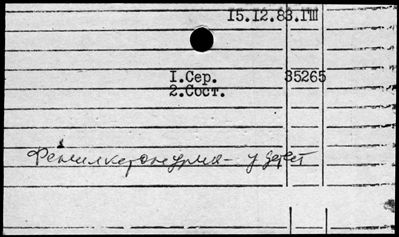 15.12.83.ГШ
1.Сер. 35265
2.Сост.
Фенилкетонурия - у детей